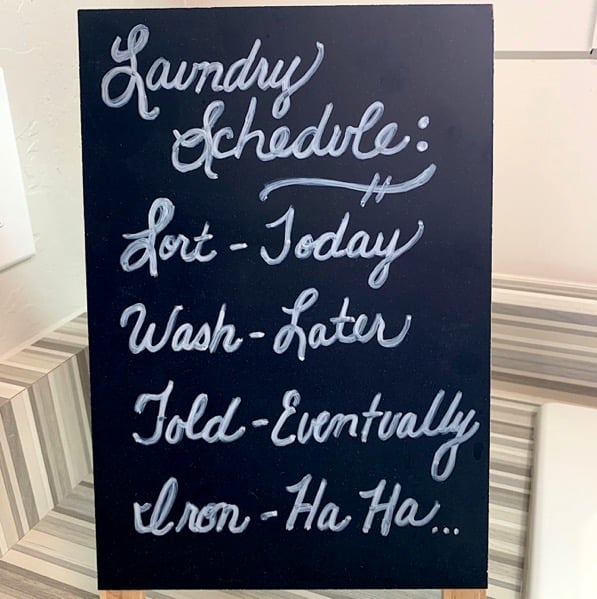 Laundry
Schedule:
Sort - Today
Wash - Later
Fold - Eventually
Iron - Ha Ha...